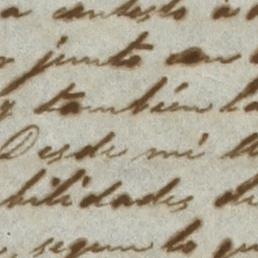 a contesto a
junto con
y también la
Desde mi
bilidades de
, segun lo que